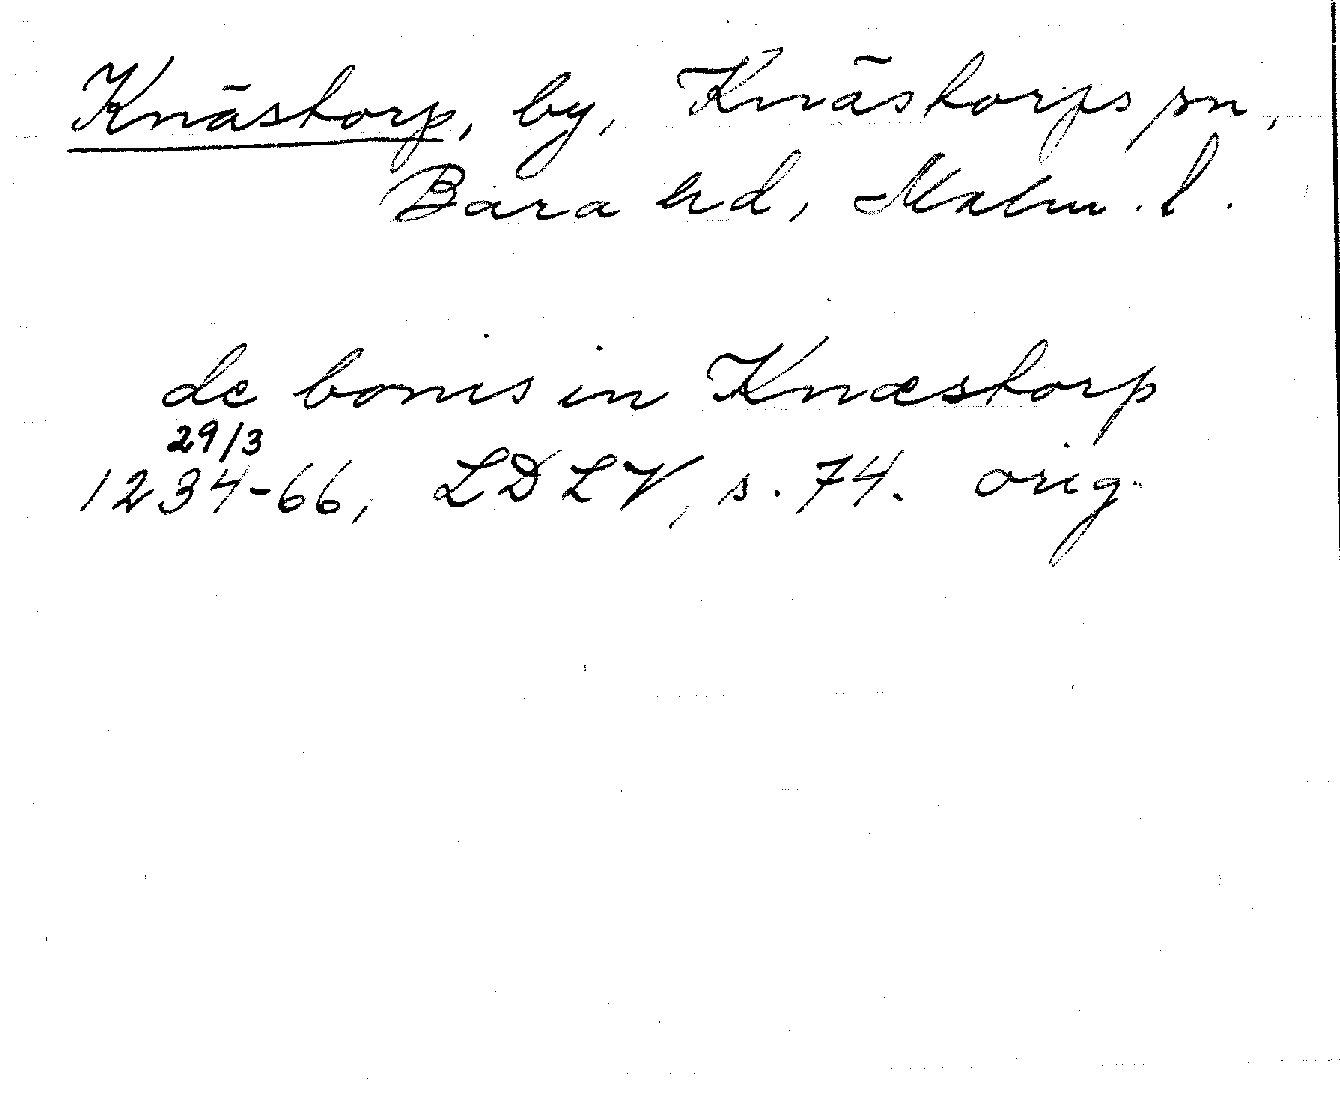 Knästorp, by, Knästorps sn,
Bara hd, Malm. l.
de bonis in Knæstorp
29/3
1234-66, LDLV, s. 74. orig.